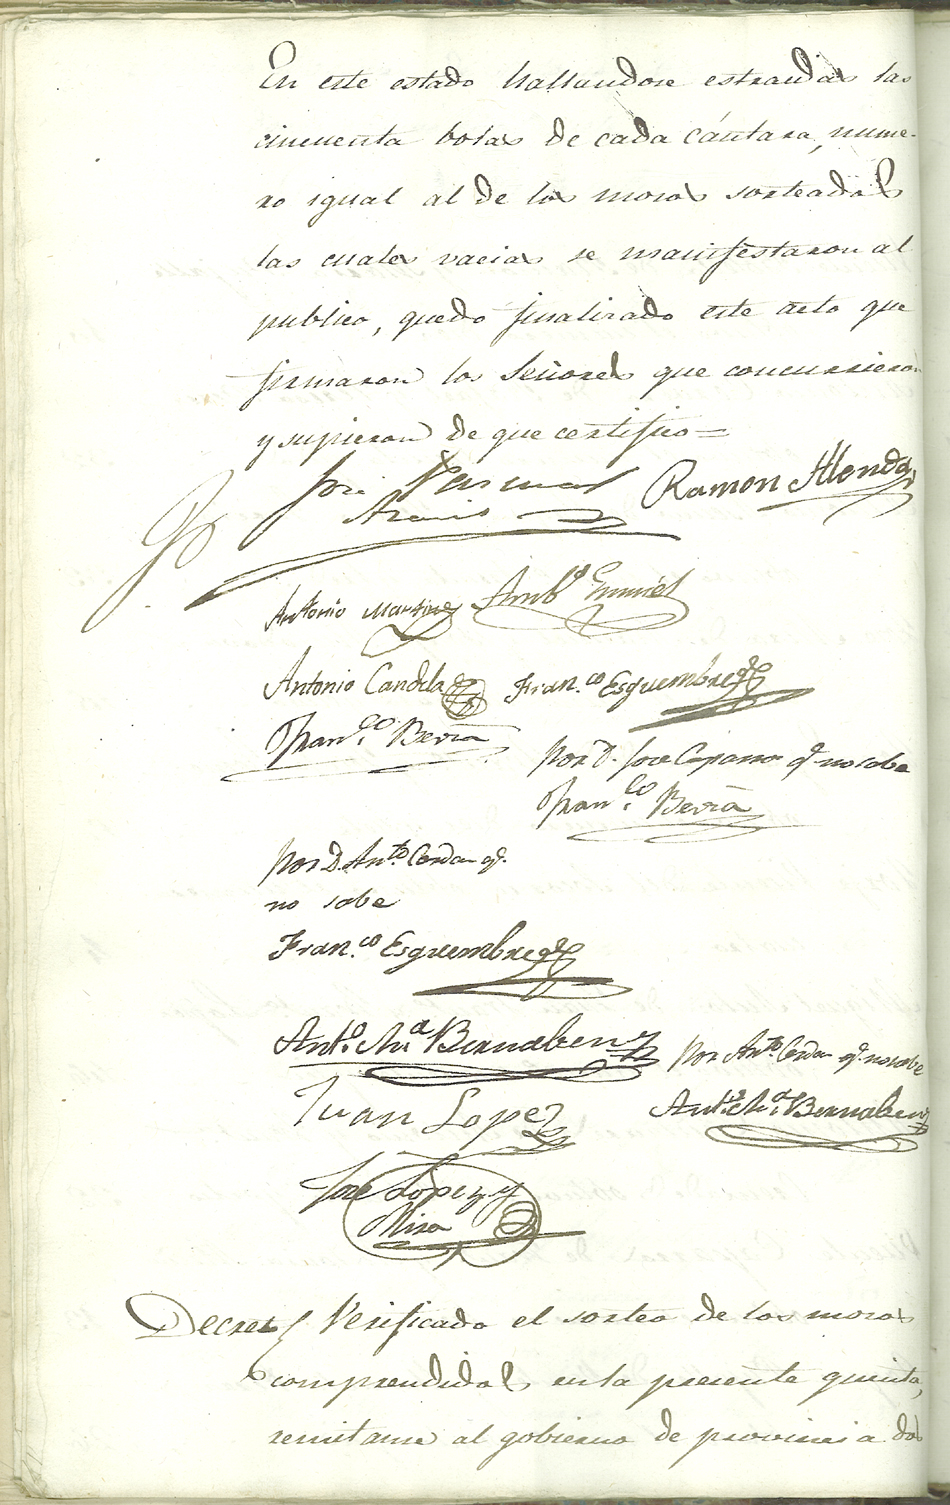 En este estado hallandose estraidas las
cincuenta bolas de cada cántara, nume-
ro igual al de los mosos sorteados
las cuales vacias se manifestaron al
publico, quedó finalizado este acto que
firmaron los Señores que concurrieron
y supieron de que certifico=
José Pascual Ramon Alenda
Antonio Martinez Amb.º
Antonio Candela Fran.co Esquembre
Fran.co Beviá
Por D. Jose que no sabe
Fran.co Beviá
Por D. Ant.º Cerdan q.
no sabe
Fran.co Esquembre
Ant.º M.a Bernabeu
Por Ant.º Cerdan q. no sabe
Juan Lopez Ant.º M.a Bernabeu
Jose Lopez y
Mira
Decreto Verificado el sorteo de los mosos
comprendidos en la presente quinta,
remitanse al gobierno de provincia dos